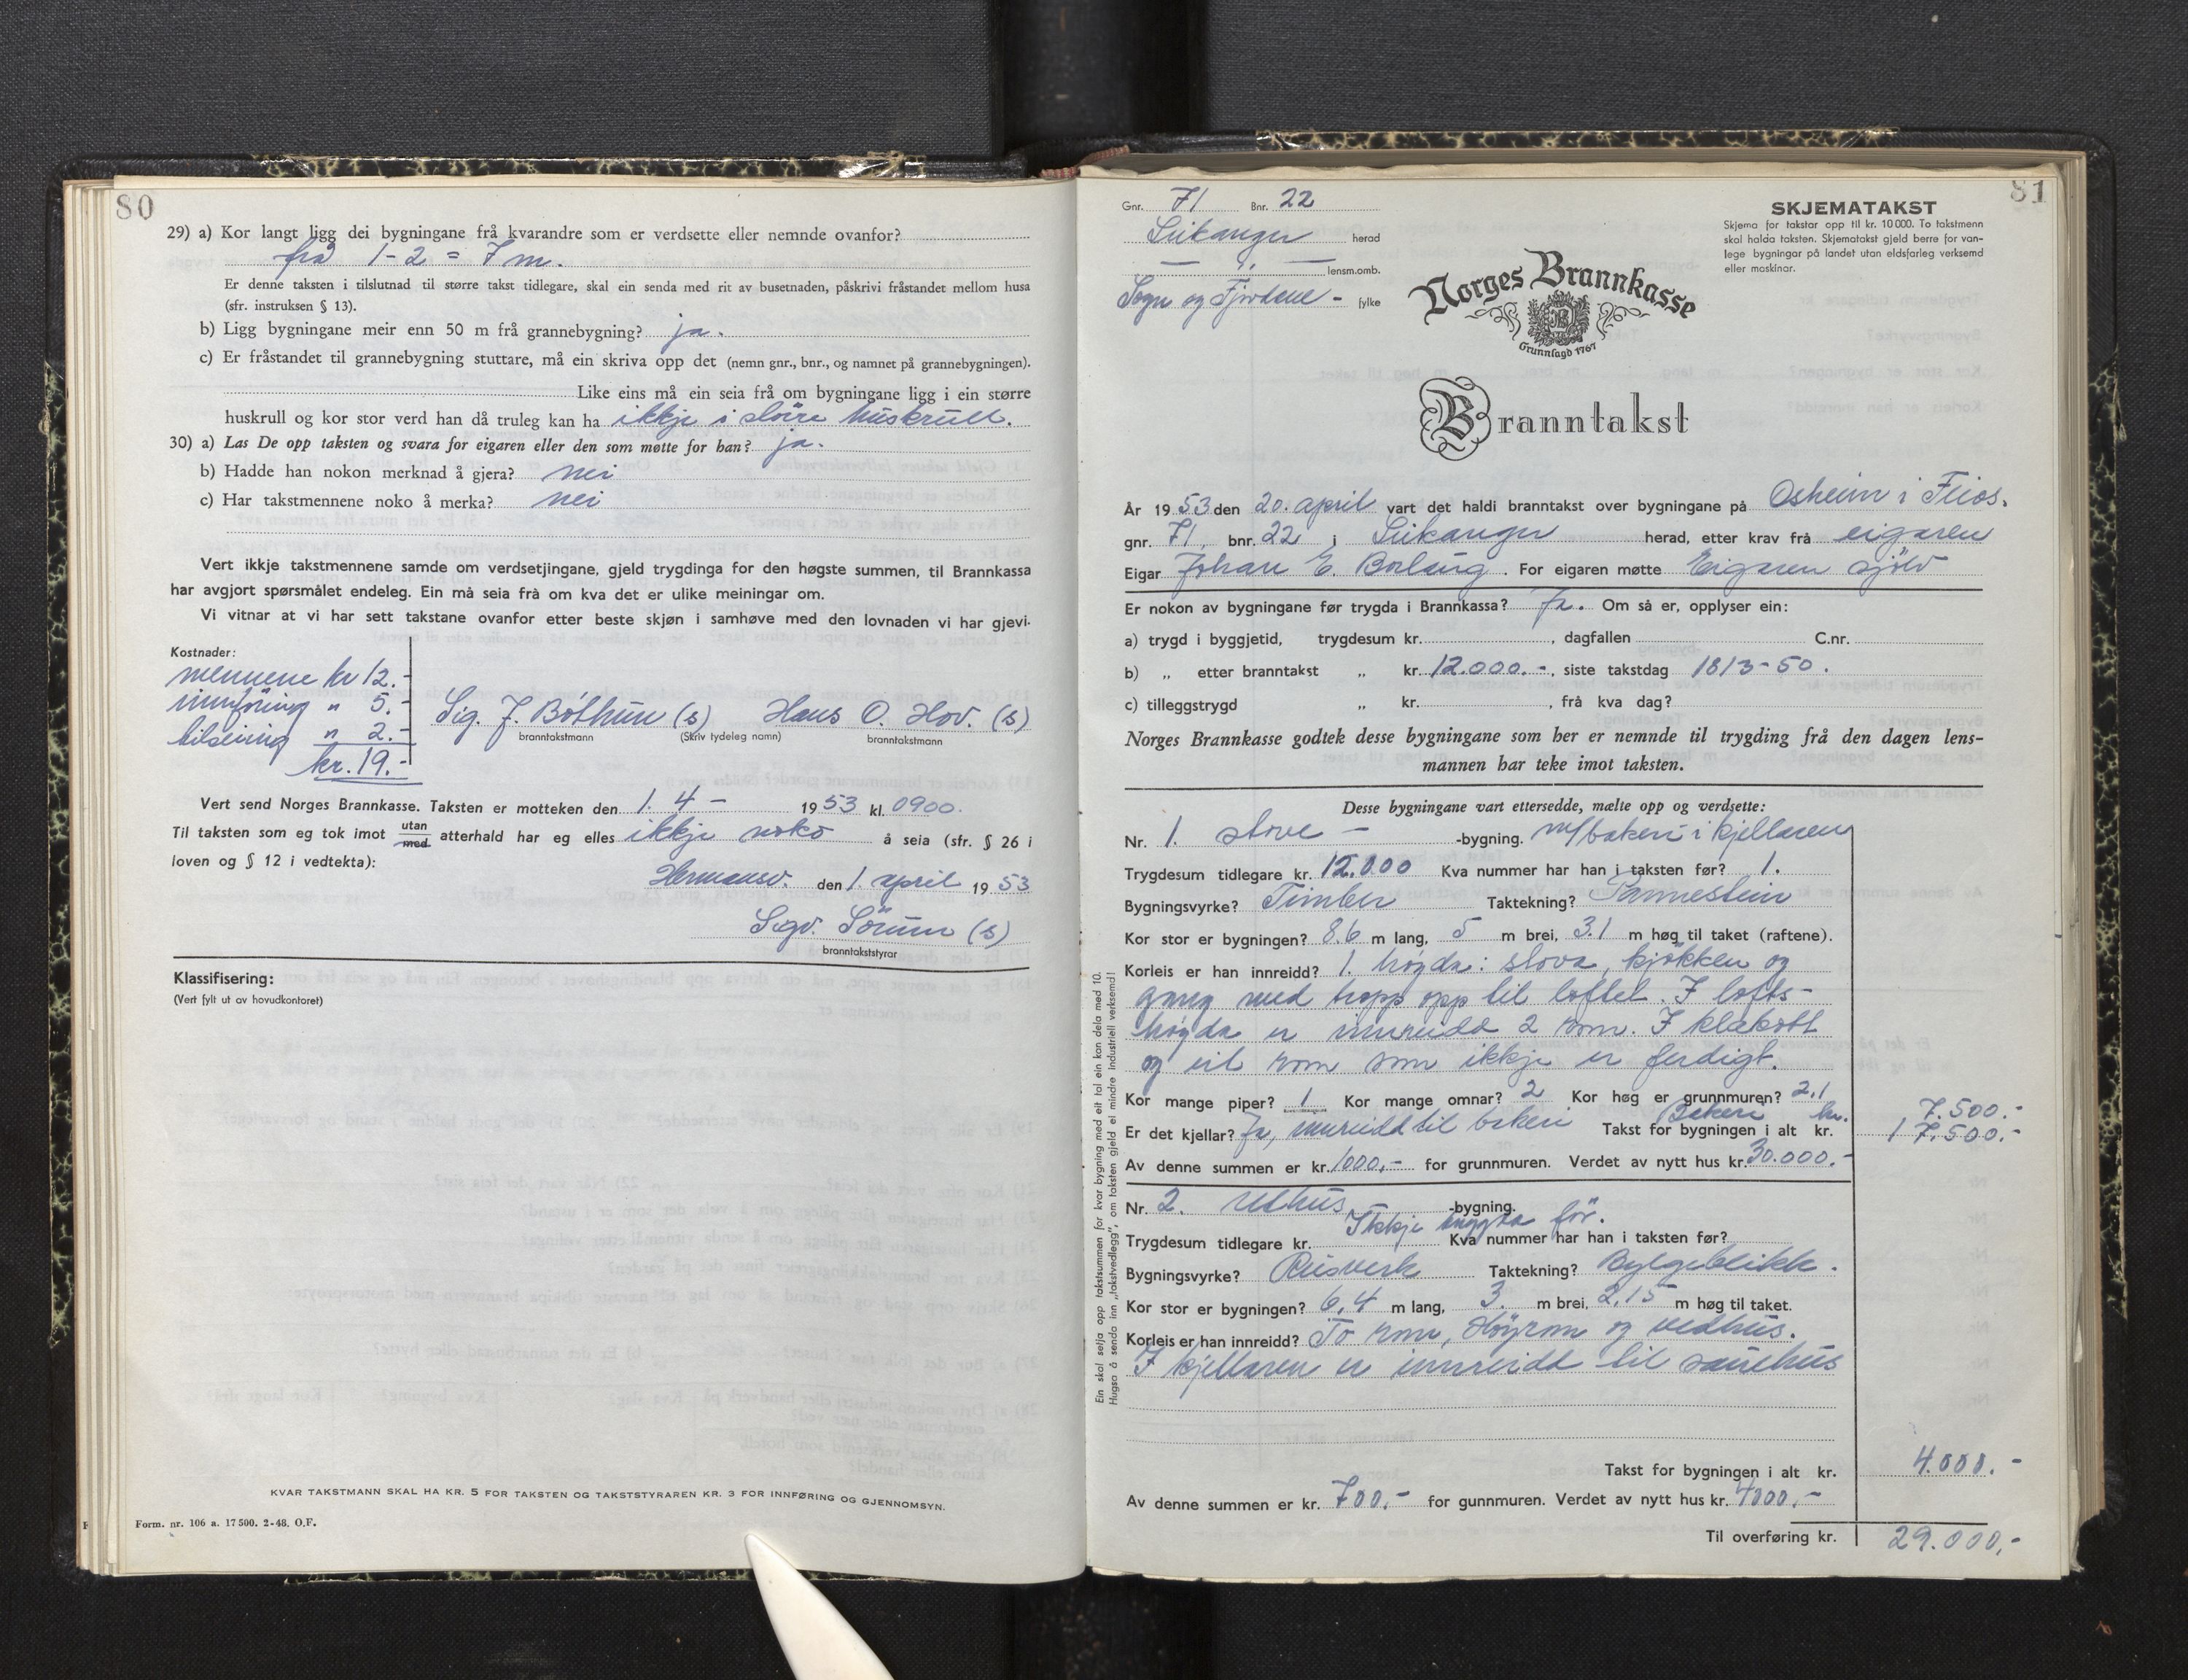 80
29) a) Kor langt ligg dei bygningane frå kvarandre som er verdsette eller nemnde ovanfor?
frå 1-2 = 7 m.
Er denne taksten i tilslutnad til større takst tidlegare, skal ein senda med rit av busetnaden, påskrivi fråstandet mellom husa
(sfr. instruksen § 13).
b) Ligg bygningane meir enn 50 m frå grannebygning? ja.
c) Er fråstandet til grannebygning stuttare, må ein skriva opp det (nemn gnr., bnr., og namnet på grannebygningen).
Like eins må ein seia frå om bygningane ligg i ein større
huskrull og kor stor verd han då truleg kan ha ikkje i større huskrull.
30) a) Las De opp taksten og svara for eigaren eller den som møtte for han? ja.
b) Hadde han nokon merknad å gjera? nei
c) Har takstmennene noko å merka? nei
Vert ikkje takstmennene samde om verdsetjingane, gjeld trygdinga for den høgste summen, til Brannkassa
har avgjort spørsmålet endeleg. Ein må seia frå om kva det er ulike meiningar om.
Vi vitnar at vi har sett takstane ovanfor etter beste skjøn i samhøve med den lovnaden vi har gjevi.
Kostnader:
mennene kr 12.-
innföring " 5.-
" 2.-
kr. 19.-
Sig. J. Bóthun (s) Hans O. Hov. (s)
branntakstmann (Skriv tydeleg namn) branntakstmann
Vert send Norges Brannkasse. Taksten er motteken den 1. 4 - 1953 kl. 0900.
Til taksten som eg tok imot utan/med atterhald har eg elles ikkje noko å seia (sfr. § 26 i
loven og § 12 i vedtekta):
Hermansv. den 1. april 1953
Sigv. Sörum (s)
branntakststyrar
Klassifisering:
(Vert fylt ut av hovudkontoret)
KVAR TAKSTMANN SKAL HA KR. 5 FOR TAKSTEN OG TAKSTSTYRAREN KR. 3 FOR INNFØRING OG GJENNOMSYN.
Form. nr. 106 a. 17500. 2-48. O.F.
81
Gnr. 71 Bnr. 22
Leikanger herad
— " — lensm.omb.
Sogn og Fjordane - fylke
SKJEMATAKST
Skjema for takstar opp til kr. 10 000. To takstmenn
skal halda taksten. Skjematakst gjeld berre for van-
lege bygningar på landet utan eldsfarleg verksemd
eller maskinar.
Norges Brannkasse
Grunnlagd 1767
Branntakst
År 1953 den 20. april vart det haldi branntakst over bygningane på Osheim i Frios.
gnr. 71, bnr. 22 i Leikanger herad, etter krav frå eigaren
Eigar Johan E. Borlaug. For eigaren møtte Eigaren sjölv
Er nokon av bygningane før trygda i Brannkassa? Ja. Om så er, opplyser ein:
a) trygd i byggjetid, trygdesum kr. , dagfallen C.nr.
b) „ etter branntakst „ kr. 12.000.-, siste takstdag 18/3-50.
c) tilleggstrygd „ kr. , frå kva dag?
Norges Brannkasse godtek desse bygningane som her er nemnde til trygding frå den dagen lens-
mannen har teke imot taksten.
Desse bygningane vart ettersedde, mælte opp og verdsette:
Nr. 1. stove - -bygning. m/bakeri i kjellaren
Trygdesum tidlegare kr. 12.000 Kva nummer har han i taksten før? 1.
Bygningsvyrke? Timber Taktekning? Pannestein
Kor stor er bygningen? 8.6 m lang, 5 m brei, 3.1 m høg til taket (raftene).
Korleis er han innreidd? 1. høgda: stova, kjökken og
gang med tropp opp til loftet. I lofts-
høgda er innreidd 2 rom. I klekott
og eit rom som ikkje er ferdigt.
Kor mange piper? 1 Kor mange omnar? 2 Kor høg er grunnmuren? 2.1
Bakeri kr. 7.500.-
Er det kjellar? Ja, innreidd til bakeri Takst for bygningen i alt kr. 17.500.-
Av denne summen er kr. 1000.- for grunnmuren. Verdet av nytt hus kr. 30.000.-
Nr. 2. Uthus -bygning.
Ikkje trygda för.
Trygdesum tidlegare kr. Kva nummer har han i taksten før?
Bygningsvyrke? Reisverk Taktekning? Bylgjeblikk.
Kor stor er bygningen? 6,4 m lang, 3. m brei, 2,15 m høg til taket.
Korleis er han innreidd? To rom, Höyrom og vedhus.
I kjellaren er innreidd til sauehus
Takst for bygningen i alt kr. 4.000.-
Av denne summen er kr. 700,- for gunnmuren. Verdet av nytt hus kr. 4000,-
Til overføring kr. 29.000,-
Ein skal setja opp takstsummen for kvar bygning med eit tal ein kan dela med 10.
Hugsa å senda inn „takstvedlegg", om taksten gjeld ei mindre industriell verksemd!